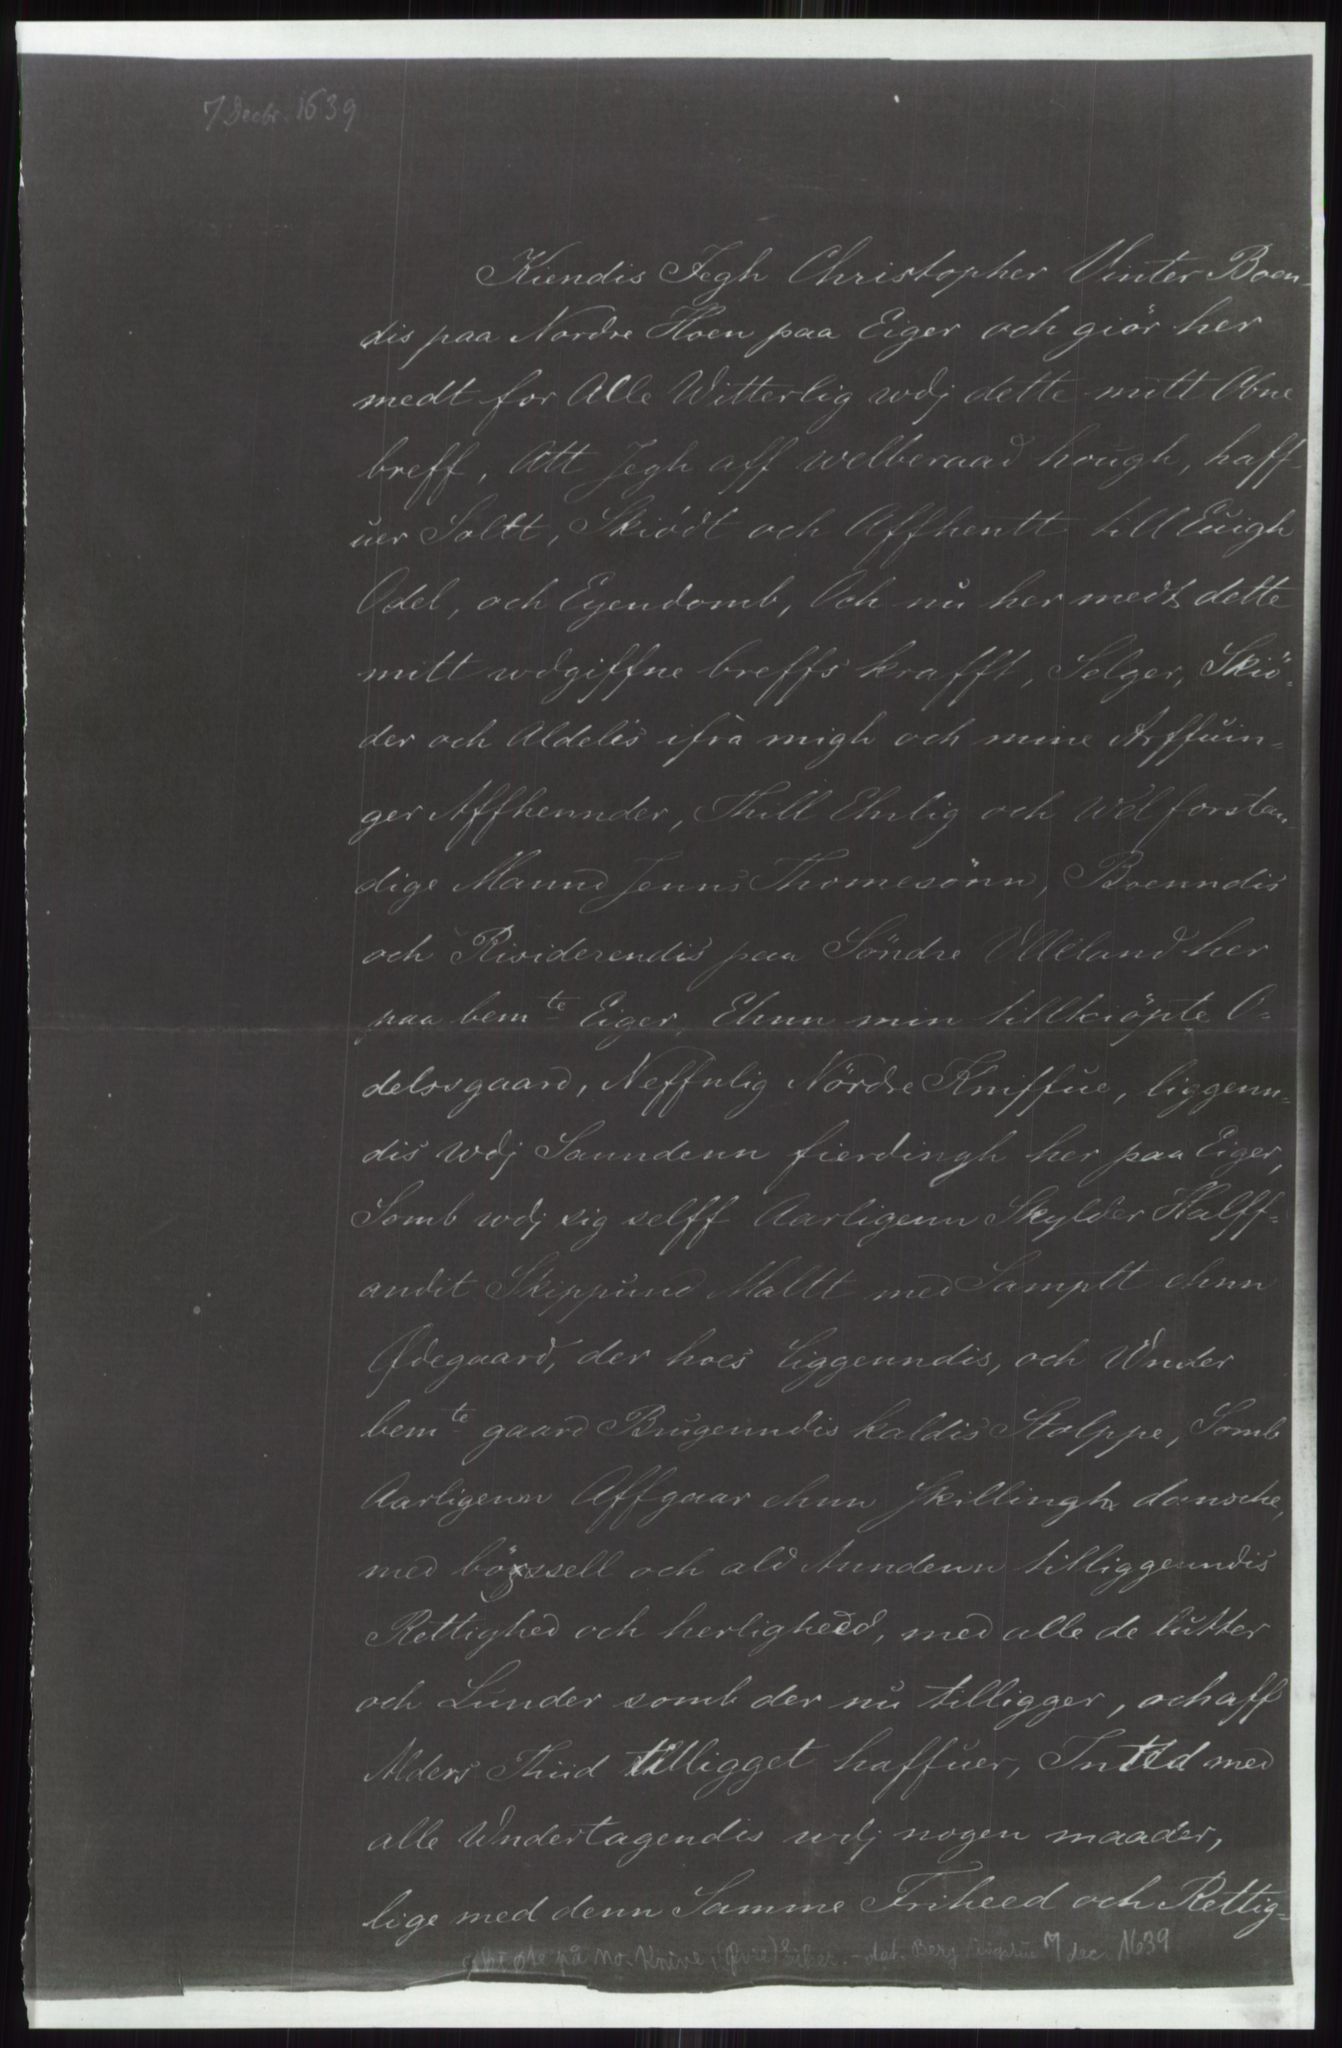 7 Decbr. 1639
Kiendis Jegh Christopher Vinter Boen-
dis paa Nordre Hoen paa Eiger och giör her
medt for Alle Witterlig wdj dette mitt Obne
breff, Att Jegh aff welberaad hough, haff-
uer Soltt, Skiødt och Affhentt till Euigh
Odel, och Eyendomb, Och nu her medt dette
mitt wdgiffne breffs krafft, Selger, Skiö-
der och Aldelis ifra migh och mine Arffuin-
ger Affhennder, Thill Ehrlig och Wel forstan-
dige Mannd Jenns Thomesönn, Boenndis
och Risiderendis paa Söndre Ulleland her
paa bemte Eiger, Ehnn min tillkiöpte O-
delssgaard, Neffnlig Nördre Kniffue, liggenn-
dis wdj Sanndenn fierdingh her paa Eiger,
Somb wdj sig selff Aarligenn Skylder Halff-
andit Skippund Maltt med Samptt ehnn
Ødegaard, der hoes liggenndis, och Wnder
bemte gaard Brugenndis kaldis Stolppe, Somb
Aarligenn Affgaar ehnn Skillingh dansche,
med böxssell och ald Anndenn tilliggenndis
Rettighed och herligheed, med alle de lutter
och Lunder somb der nu tilligger, och aff
Alders Thiid tilligget haffuer, Inttd med
alle Wndertagendis wdj nogen maader,
lige med denn Samme Friheed och Rettig-
på No. Knive, (Øvre) Eiker. - dat. Berg 7 dec. 1639